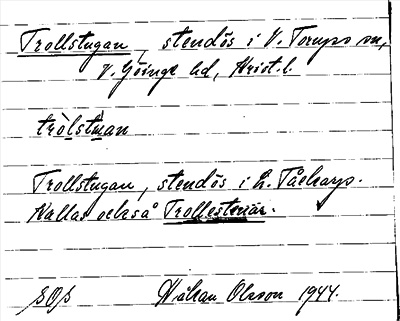 Trollstugan, stendös i V. Torups sn,
V. Göinge hd, Krist. l.
Trollstugan, stendös i L. Tåckarp.
Kallas också Trollestenar.
SOS Håkan Olsson 1944.